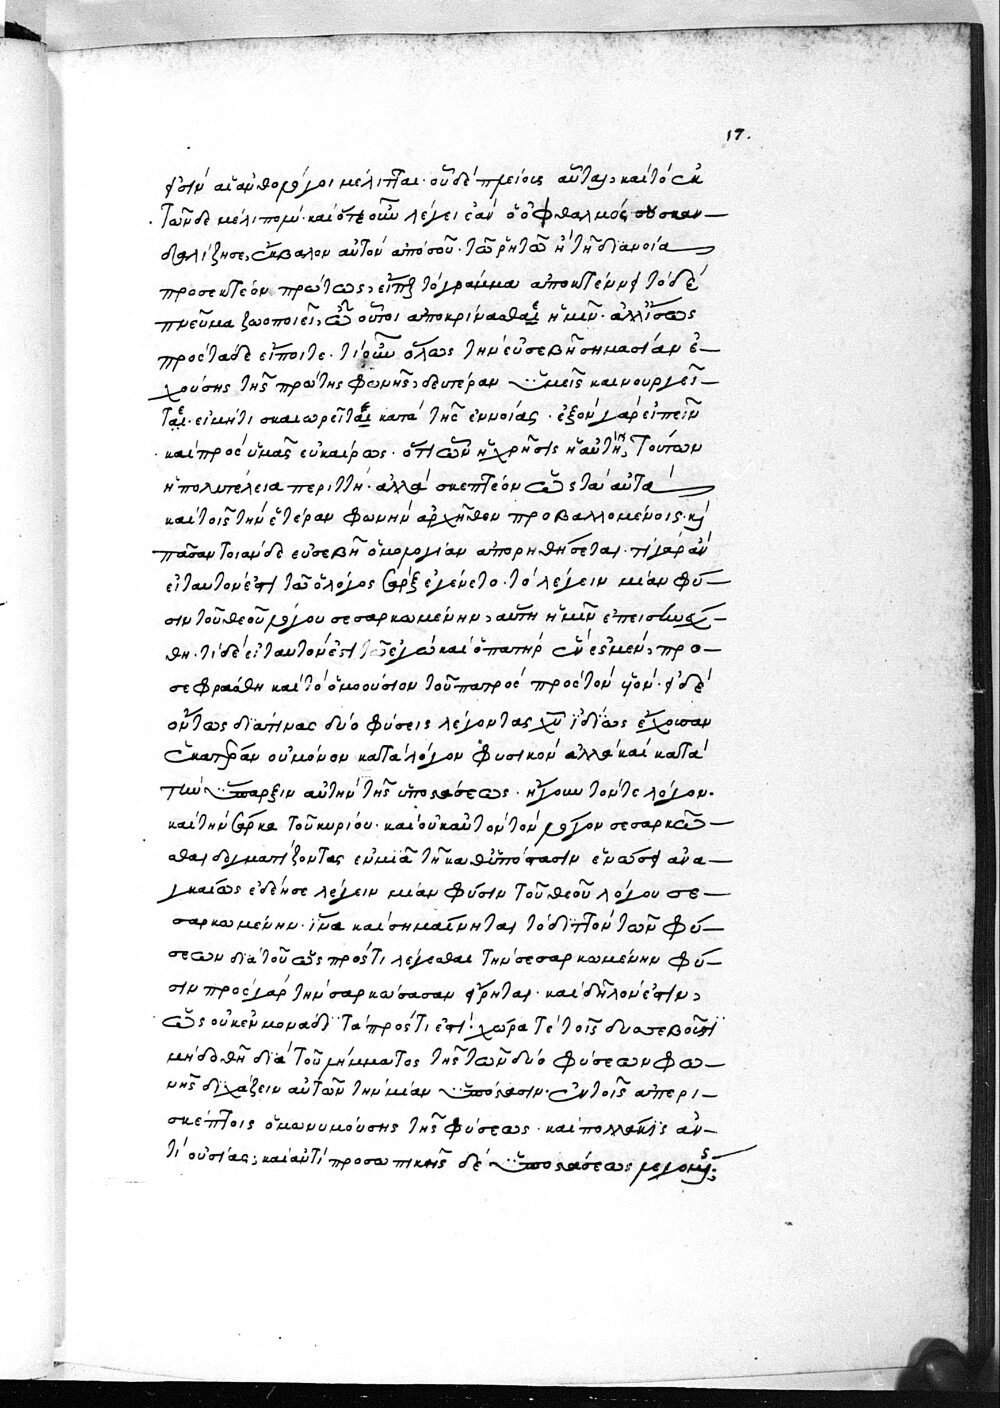 17.
φασὶν αἱ ἀνθολόγοι μέλιτται· οὐδὲ πρείους αὗται, καὶ τὸ ἐκ
τῶνδε μέλι ποιμ· καὶ ὅτε οὖν λέγει ἐὰν ὁ ὀφθαλμός σου σκαν–
δαλίζησε, ἔκβαλον αὐτὸν ἀπό σοῦ· τῶ ῥητῶ ἢ τῆ διανοία
προσεκτέον πρώτως, εἴπερ τὸ γράμμα ἀποκτέννει τὸ δὲ
πνεῦμα ζωοποιεῖ, ὦ οὗτοι ἀποκρίνασθαι ἡμῖν· ἀλλ' ἴσως
πρὸς τάδε εἴποιτε· τί οὖν ὅλως τὴν εὐσεβῆ σημασίαν ἐ–
χούσης τῆς πρώτης φωνῆς, δευτέραν ὑμεῖς καινουργεῖ–
ται· εἰ μή τι σκαιωρεῖται κατὰ τῆς ἐννοίας· ἐξὸν γὰρ εἰπεῖν
καὶ πρὸς ὑμᾶς εὐκαίρως· ὅτι ὧν ἡ χρῆσις ἡ αὐτὴ, τούτων
ἡ πολυτέλεια περιττή· ἀλλὰ σκεπτέον ὡς ταὐτὰ
καὶ τοῖς τὴν ἑτέραν φωνὴν ἀρχῆθεν προβαλλομένοις· κ(αὶ)
πᾶσαν τοιάνδε εὐσεβῆ ὁμολογίαν ἀπορηθήσεται· τί γὰρ ἂν
εἰ ταυτόν ἐστι τῶ ὁ λόγος σὰρξ ἐγένετο· τὸ λέγειν μίαν φύ–
σιν τοῦ θεοῦ λόγου σεσαρκωμένην, αὕτη ἡμῖν ἐπεισηνέχ–
θη· τί δὲ εἰ ταυτόν ἐστι τῶ ἐγὼ καὶ ὁ πατὴρ ἕν ἐσμεν, προ–
σεφράσθη καὶ τὸ ὁμοούσιον τοῦ πατρὸς πρὸς τὸν υἱόν· εἰ δὲ
οὕτως διά τινας δύο φύσεις λέγοντας χυ ἰδίως ἔχουσαν
ἑκατέραν οὐ μόνον κατὰ λόγον φυσικὸν ἀλλὰ καὶ κατὰ
τὴν ὕπαρξιν αὐτὴν τῆς ὑποστάσεως· ἤγουν τόν τε λόγον·
καὶ τὴν σάρκα τοῦ κυρίου· καὶ οὐκ αὐτὸν τὸν λόγον σεσαρκῶ–
σθαι δογματίζοντας ἐν μιᾶ τῆ καθ' ὑπόστασιν ἑνώσει ἀνα–
γκαίως ἐδέησε λέγειν μίαν φύσιν τοῦ θεοῦ λόγου σε–
σαρκωμένην· ἵνα καὶ σημαίνηται τὸ διττὸν τῶν φύ–
σεων διὰ τοῦ ὡς πρός τι λέγεσθαι τὴν σεσαρκωμένην φύ–
σιν πρὸς γὰρ τὴν σαρκώσασαν εἴρηται· καὶ δῆλόν ἐστιν,
ὡς οὐκ ἐν μονάδι τὰ πρός τι ἐστὶ· χώρα τὲ τοῖς δυσσεβοῦσι
μὴ δοθῆ διὰ τοῦ ῥήμματος τῆς τῶν δύο φύσεων φω–
νῆς διχάζειν αὐτῶν τὴν μίαν ὑπόστασιν· ἐν τοῖς ἀπερι–
σκέπτοις ὁμωνυμούσης τῆς φύσεως· καὶ πολλάκις ἀν–
τὶ οὐσίας, καὶ ἀντὶ προσωπικῆς δὲ ὑποστάσεως λεγομένης: